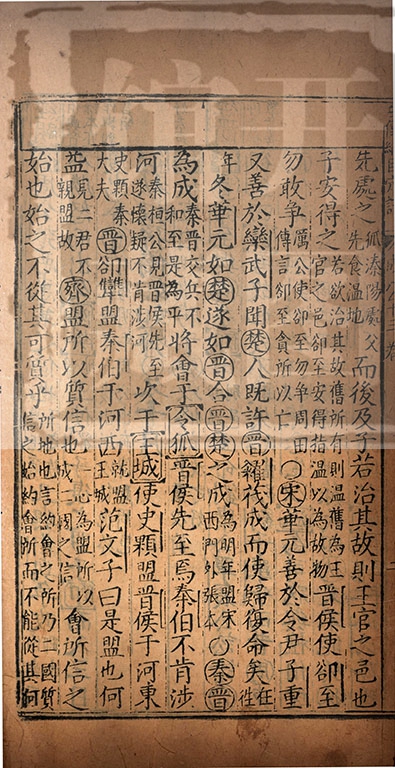 先處之狐溱陽處父先食溫地而後及子若治其故則王官之邑也
子安得之若欲治其故舊所有則溫舊為王官之邑郤至安得指溫以為故物晉侯使郤至
勿敢爭厲公使郤至勿爭周田傳言郤至貪所以亡○宋華元善於令尹子重
又善於欒武子聞楚人既許晉糴茷成而使歸復命矣在徃
年冬華元如楚遂如晉合晉楚之成為明年盟宋西門外張本○秦晉
為成秦晉交兵不和至是為平將會于令狐晉侯先至焉秦伯不肯涉
河秦桓公見晉侯先至遂懷疑不肯涉河次于王城使史顆盟晉侯于河東
史顆秦大夫晉郤犨盟秦伯于河西就盟王城范文子曰是盟也何
益見二君不親盟故齊盟所以質信也一心為盟所以成二國之信會所信之
始也始之不從其可質乎所地也言約會之所乃二國質信之始約會所而不能從其何